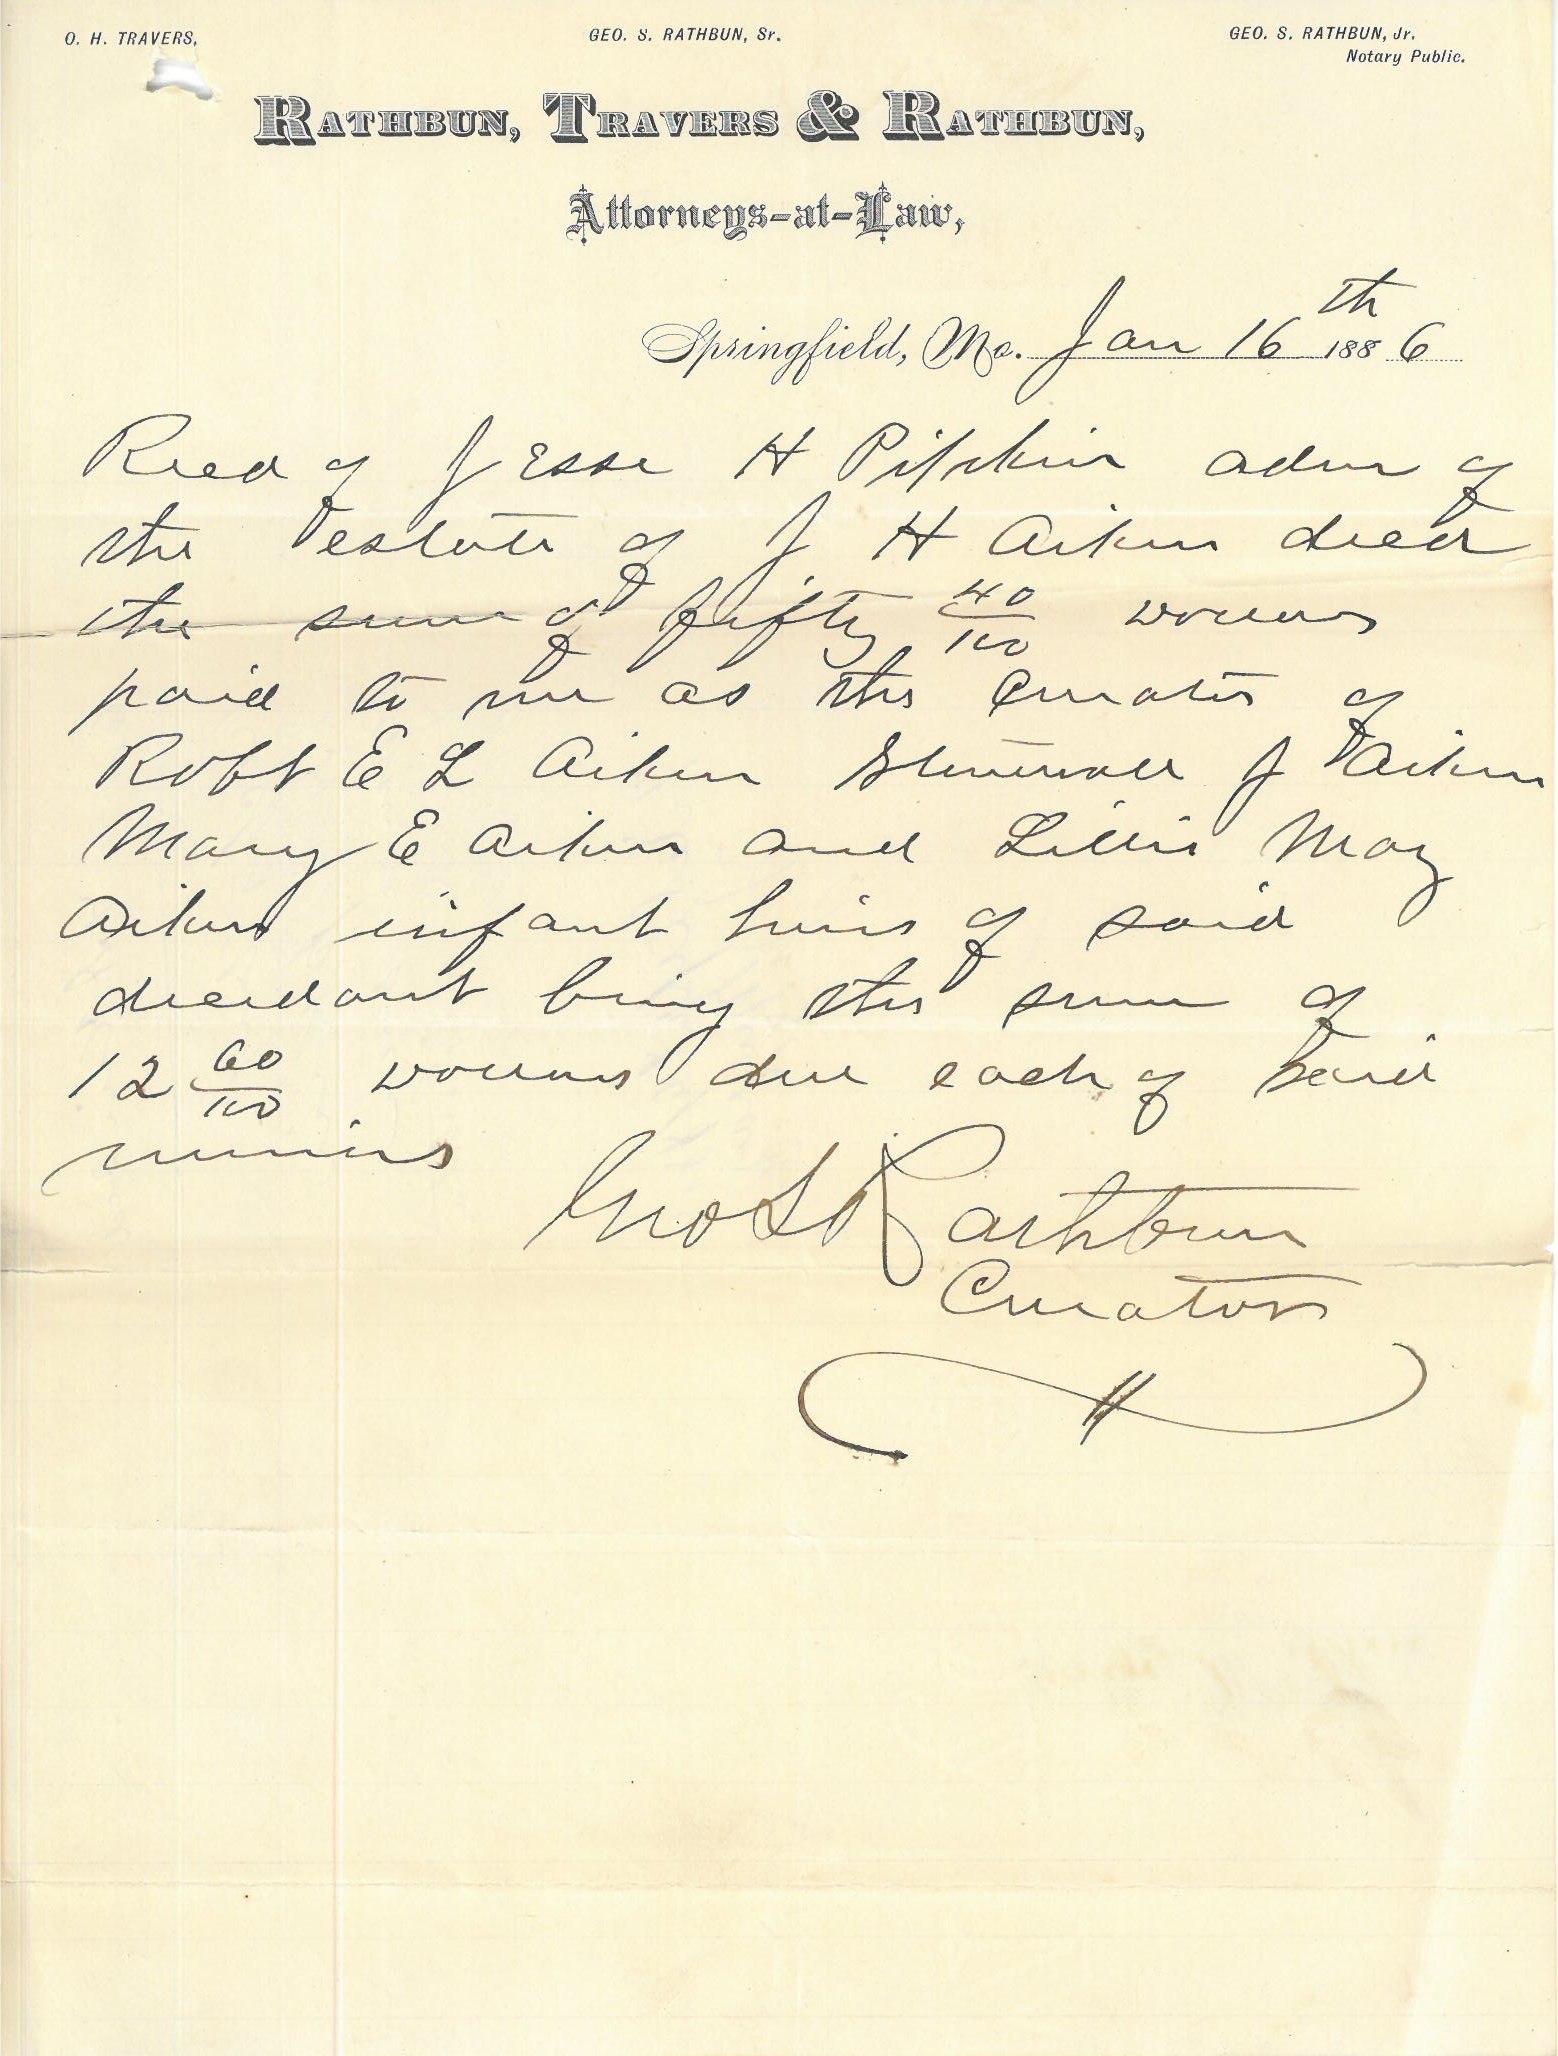 O. H. TRAVERS,
GEO. S. RATHBUN, Sr.
GEO. S. RATHBUN, Jr.
Notary Public.
RATHBUN, TRAVERS & RATHBUN,
Attorneys-at-Law,
Springfield, Mo. Jan 16th 1886
Recd of Jesse H Pipkin adm of
the estate of J H Aiken decd
the sum of fifty 40/100 dollars
paid to me as the Curator of
Robt E L Aiken Stonewall J Aiken
Mary E Aiken and Lillie May
Aiken infant heirs of said
decedant being the sum of
12 60/100 dollars due each of said
minors
Geo S Rathbun
Curator